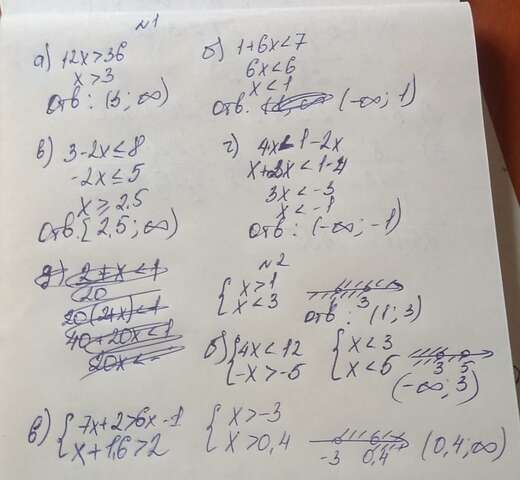 №1
а) 12x>36
x>3
Отв: (3; ∞)
б) 1+6x<7
6x<6
x<1
Отв: (-∞; 1)
в) 3-2x≤8
-2x≤5
x≥2,5
Отв. [2,5; ∞)
г) 4x<1-2x
3x<-3
x<-1
Отв: (-∞; -1)
д) 2+x<1
20
20(2+x)<1
40+20x<1
20x<-
№2
{ x>1
x<3
3
Отв: (1; 3)
б) { 4x<12
-x>-5
{ x<3
x<5
3 5
(-∞; 3)
в) { 7x+2>6x-1
x+1,6>2
{ x>-3
x>0,4
-3 0,4
(0,4; ∞)